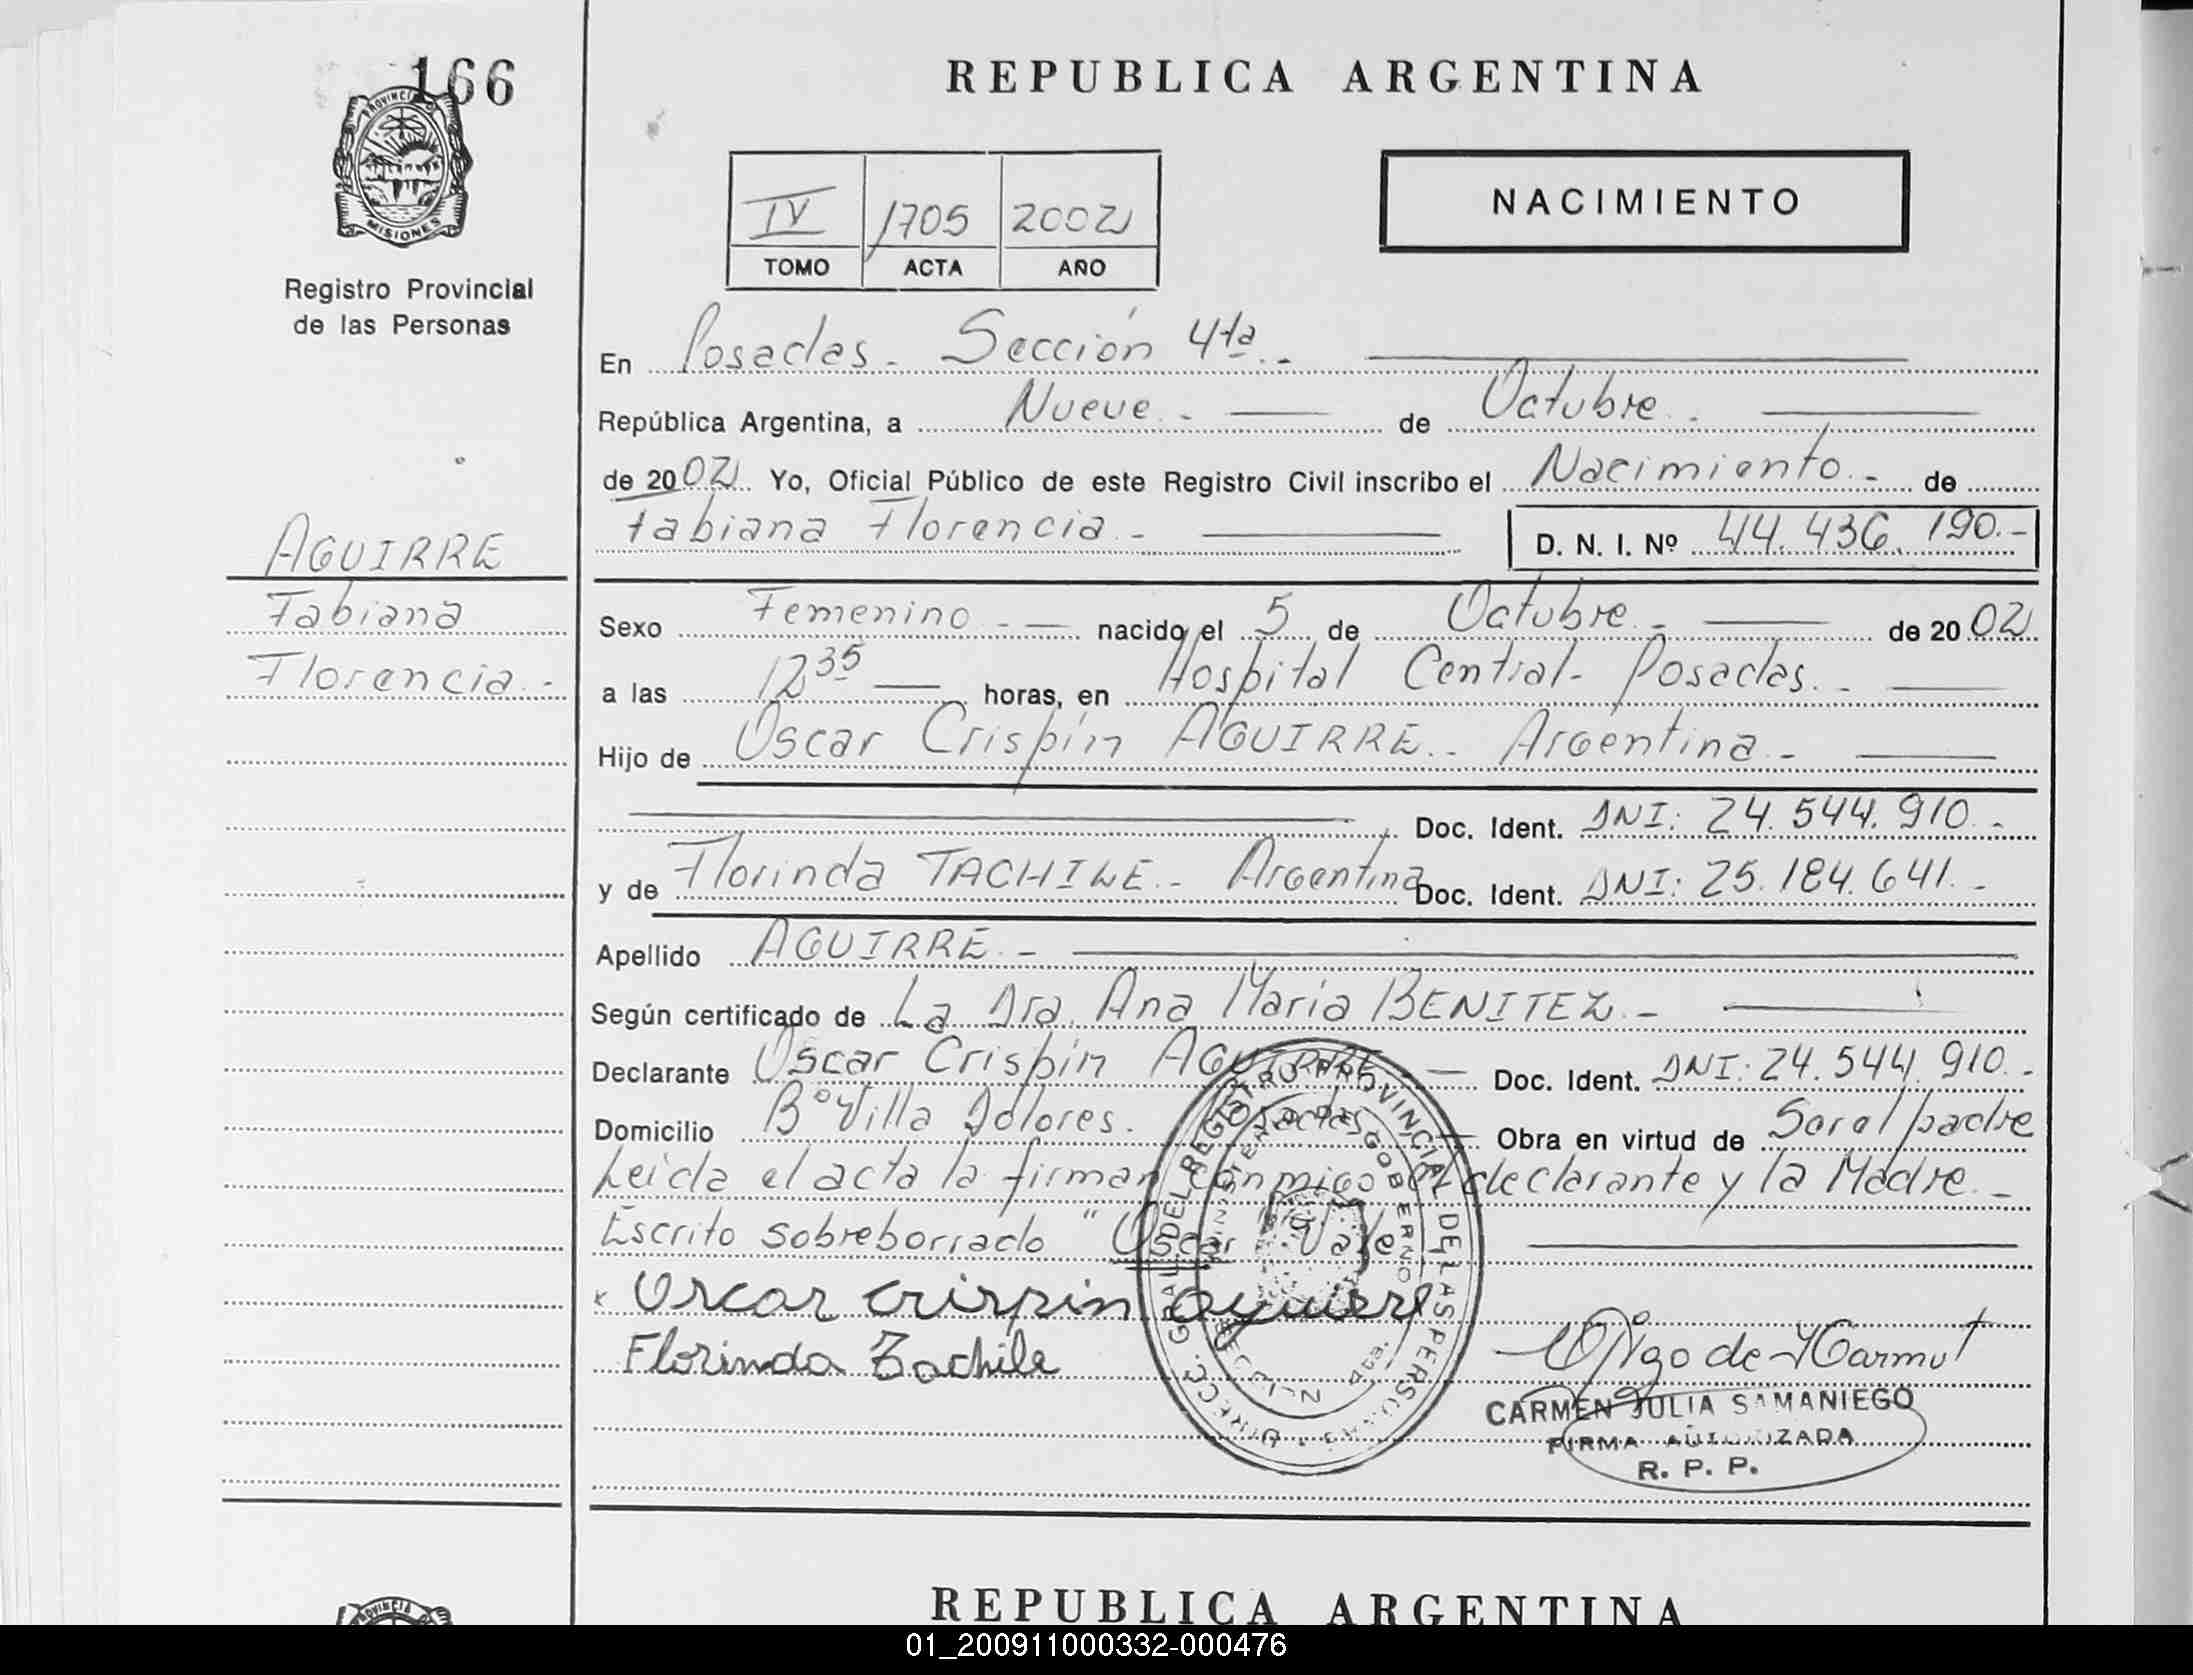 166
PROVINCIA
MISIONES
Registro Provincial
de las Personas
AGUIRRE
Fabiana
Florencia.-
REPUBLICA ARGENTINA
NACIMIENTO
IV 1705 2002
TOMO ACTA AÑO
En Posadas.- Sección 4ta.-
República Argentina, a Nueve.- de Octubre.-
de 2002 Yo, Oficial Público de este Registro Civil inscribo el Nacimiento.- de
Fabiana Florencia.- D. N. I. Nº 44.436.190.-
Sexo Femenino.- nacido el 5 de Octubre.- de 2002
a las 12 35 horas, en Hospital Central- Posadas.-
Hijo de Oscar Crispín AGUIRRE.- Argentina.-
Doc. Ident. DNI: 24.544.910.-
y de Florinda TACHILE.- Argentina Doc. Ident. DNI: 25.184.641.-
Apellido AGUIRRE.-
Según certificado de La Dra. Ana María BENITEZ.-
Declarante Oscar Crispín AGUIRRE Doc. Ident. DNI: 24.544.910.-
Domicilio Bº Villa Dolores. Posadas Obra en virtud de Ser el padre
Leída el acta la firman conmigo el declarante y la Madre.-
Escrito sobreborrado "Oscar" Vale
x Oscar crispin aguirre
Florinda Tachile
DIRECC. GRAL. DEL REGISTRO PROVINCIAL DE LAS PERSONAS
MINISTERIO DE GOBIERNO
CARMEN JULIA SAMANIEGO
FIRMA AUTORIZADA
R. P. P.
REPUBLICA ARGENTINA
01_200911000332-000476